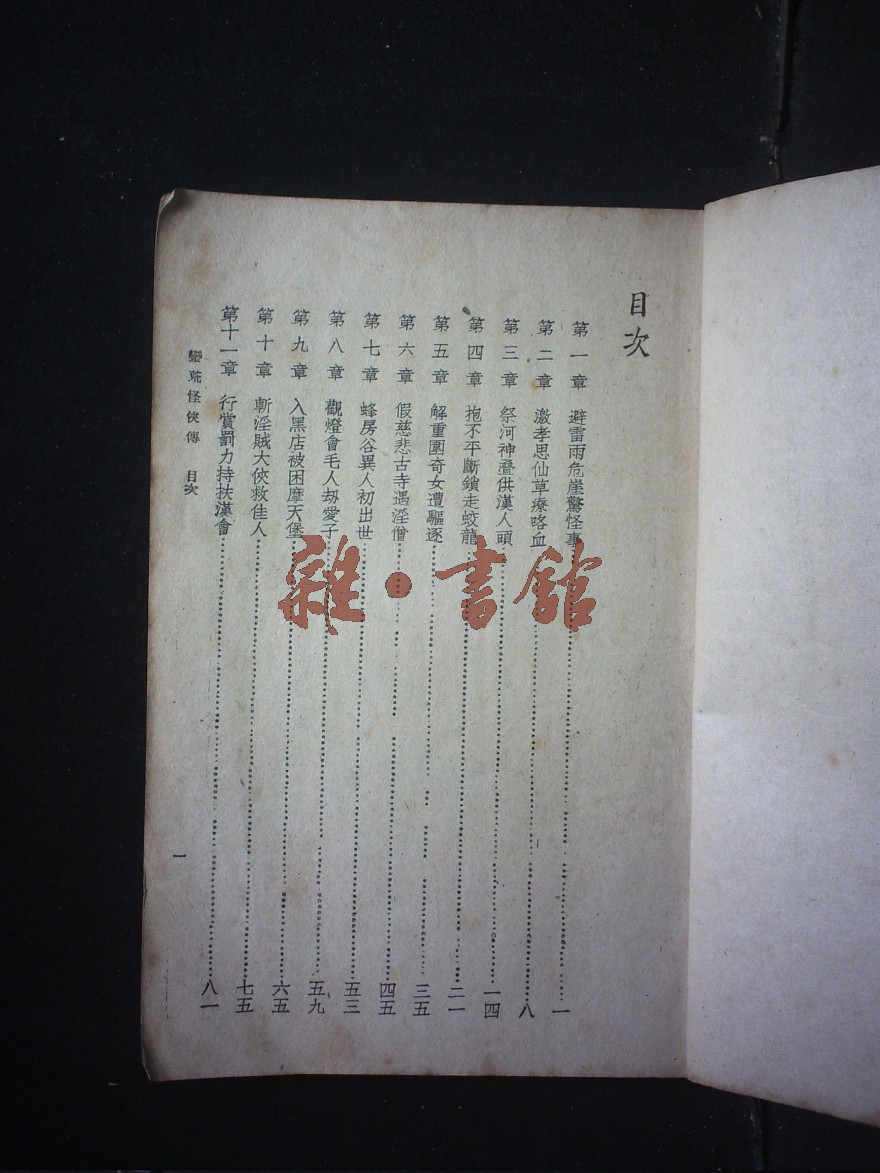 目次
第一章 避雷雨危崖驚怪事 一
第二章 激孝思仙草療咯血 八
第三章 祭河神疊供漢人頭 一四
第四章 抱不平斷鎖走蛟龍 二一
第五章 解重圍奇女遭驅逐 三五
第六章 假慈悲古寺遇淫僧 四五
第七章 蜂房谷異人初出世 五三
第八章 觀燈會毛人刼愛子 五九
第九章 入黑店被困摩天堡 六五
第十章 斬淫賊大俠救佳人 七五
第十一章 行賞罰力持扶漢會 八一
蠻荒怪俠傳 目次
一
雜·書館